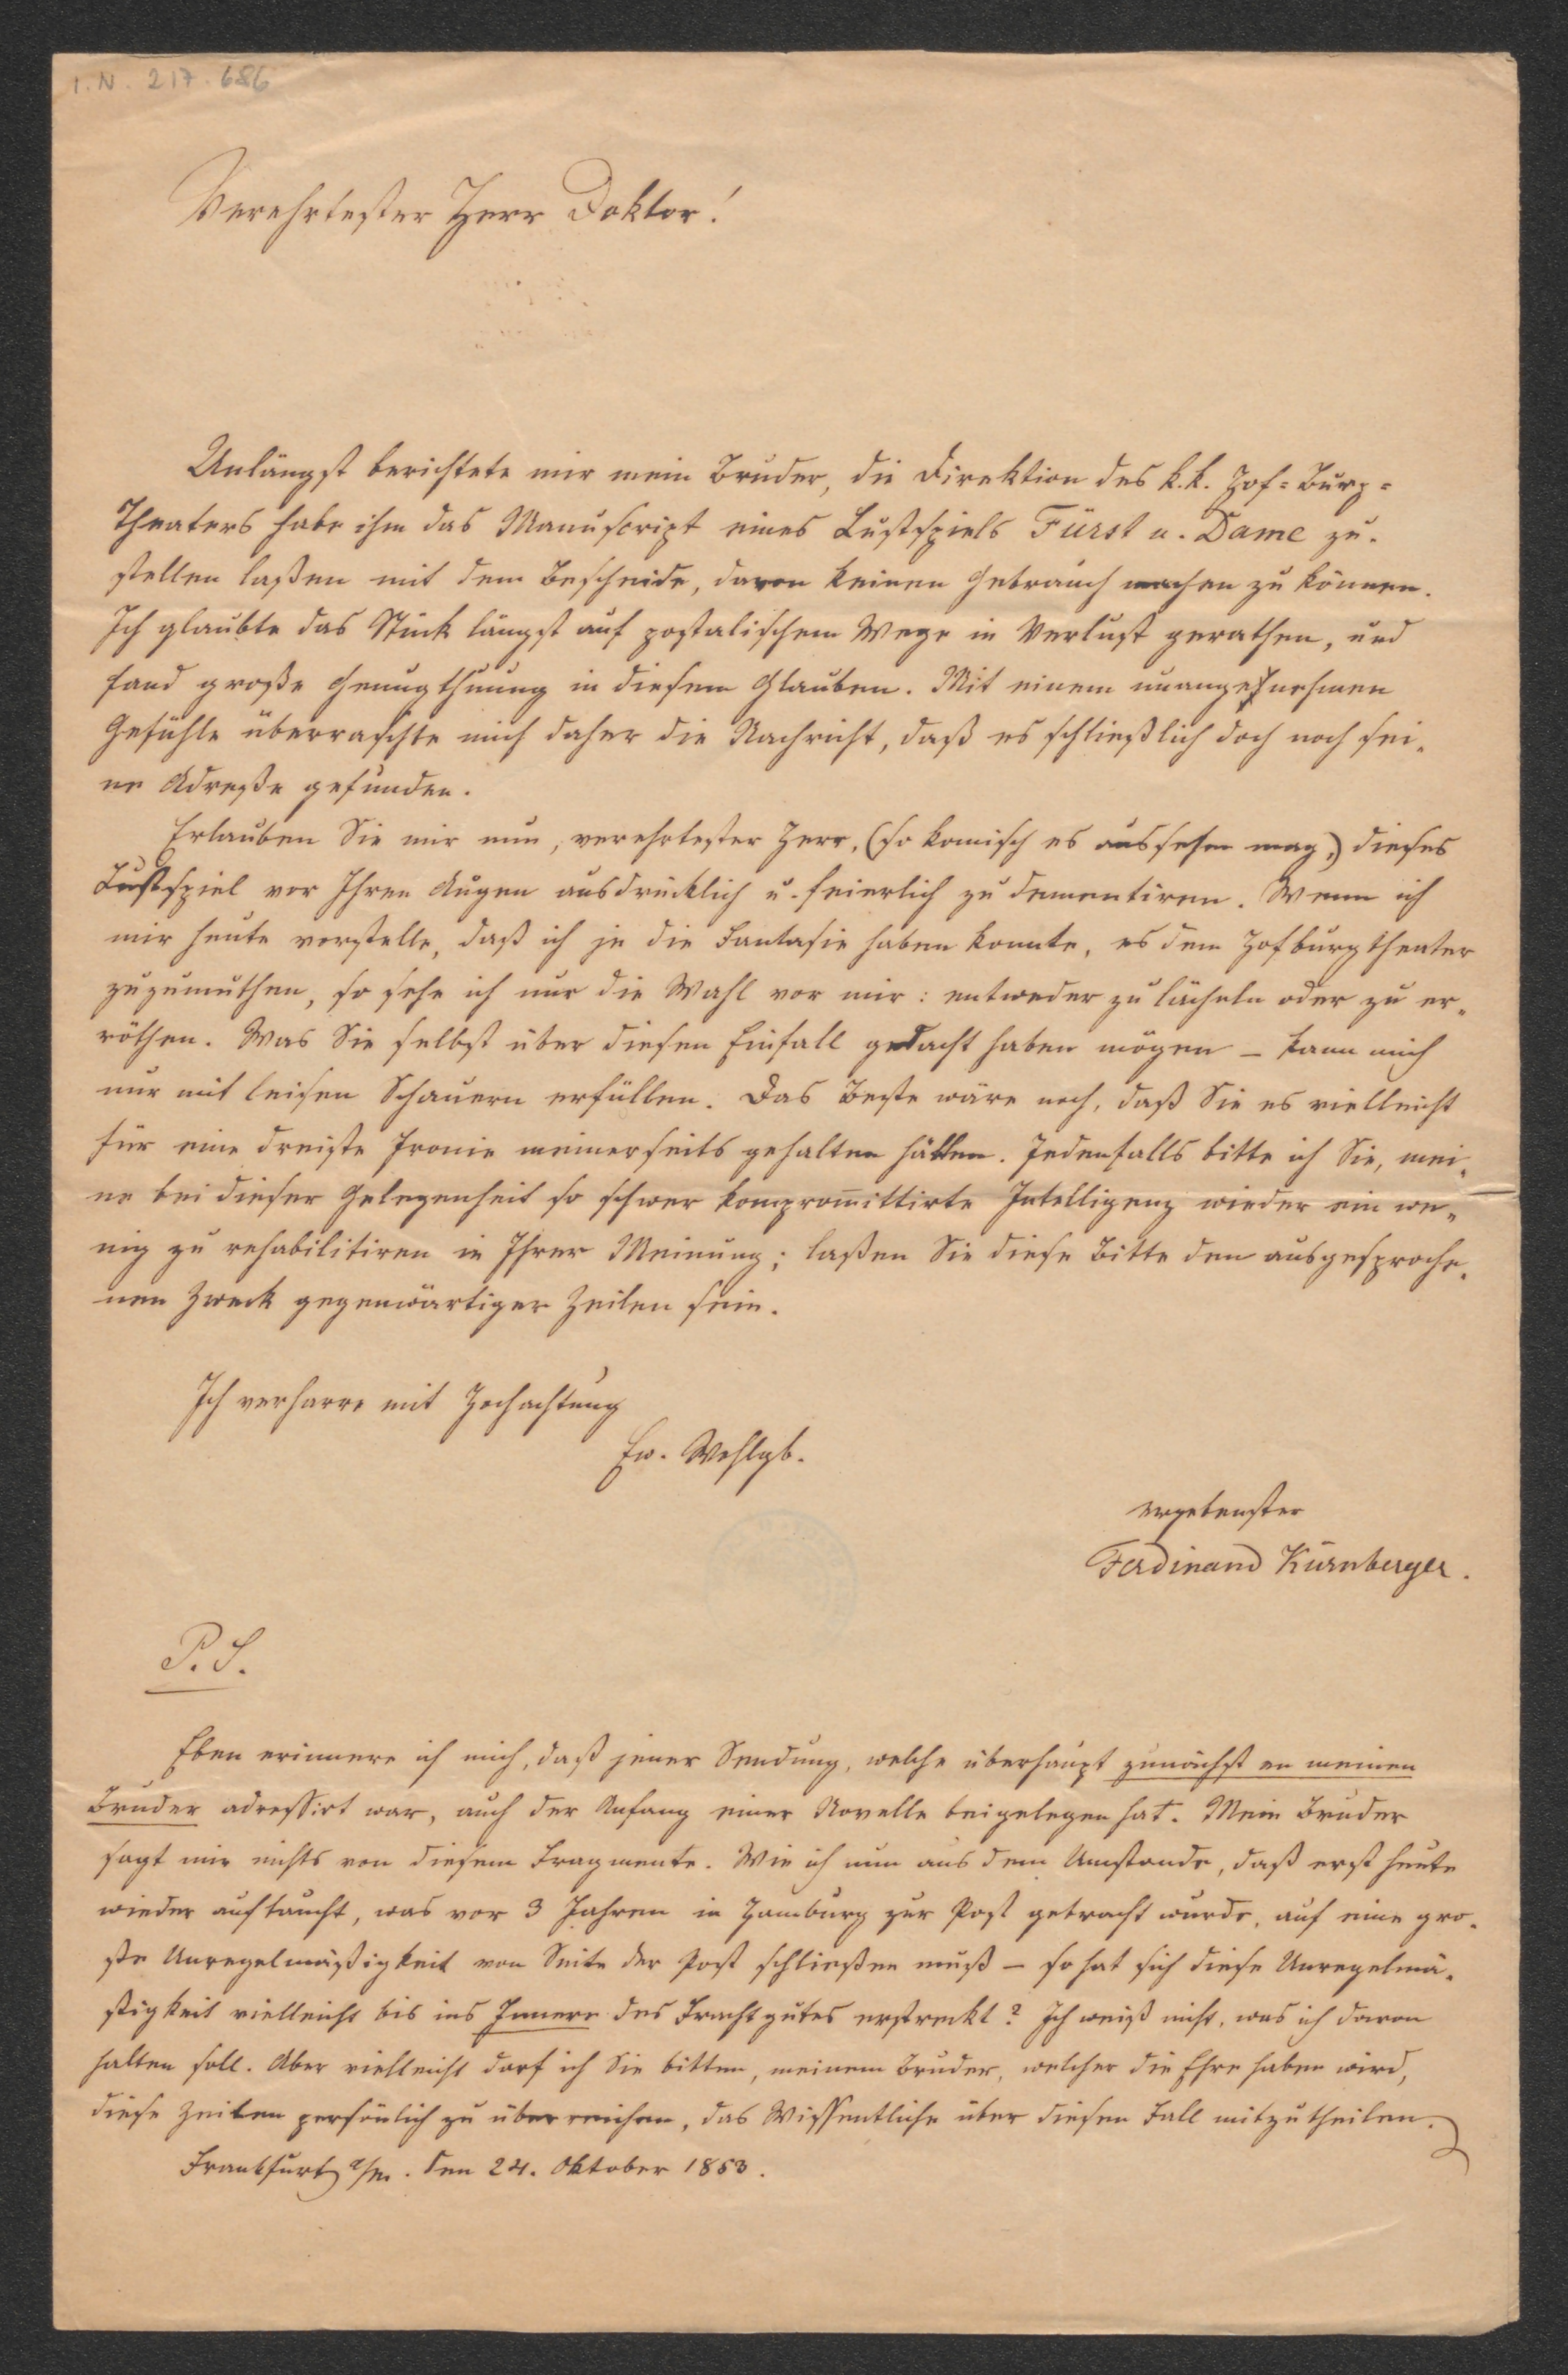 I.N. 217.686
Verehrtester Herr Doktor!
Unlängst berichtete mir mein Bruder, die Direktion des k.k. Hof=Burg=
Theaters habe ihm das Manuscript eines Lustspiels Fürst u. Dame zu-
stellen laßen mit dem Bescheide, davon keinen Gebrauch machen zu können.
Ich glaubte das Stück längst auf postalischem Wege in Verlust gerathen, und
fand große Genugthuung in diesem Glauben. Mit einem unangenehmen
Gefühle überraschte mich daher die Nachricht, daß es schließlich doch noch sei-
ne Adreße gefunden.
Erlauben Sie mir nun, verehrtester Herr, (so komisch es aussehen mag,) dieses
Lustspiel vor Ihren Augen ausdrücklich u. feierlich zu dementiren. Wenn ich
mir heute vorstelle, daß ich je die Fantasie haben konnte, es dem Hofburgtheater
zuzumuthen, so sehe ich nur die Wahl vor mir: entweder zu lächeln oder zu er-
röthen. Was Sie selbst über diesen Einfall gedacht haben mögen – kann mich
nur mit leisen Schauern erfüllen. Das Beste wäre noch, daß Sie es vielleicht
für eine dreiste Ironie meinerseits gehalten hätten. Jedenfalls bitte ich Sie, mei-
ne bei dieser Gelegenheit so schwer kompromittirte Intelligenz wieder ein we-
nig zu rehabilitiren in Ihrer Meinung; laßen Sie diese Bitte den ausgesproche-
nen Zweck gegenwärtiger Zeilen sein.
Ich verharre mit Hochachtung
Ew. Wohlgb.
ergebenster
Ferdinand Kürnberger.
P.S.
Eben erinnere ich mich, daß jener Sendung, welche überhaupt zunächst an meinen
Bruder adressirt war, auch der Anfang einer Novelle beigelegen hat. Mein Bruder
sagt mir nichts von diesem Fragmente. Wie ich nun aus dem Umstande, daß erst heute
wieder auftaucht, was vor 3 Jahren in Hamburg zur Post gebracht wurde, auf eine gro-
ße Unregelmäßigkeit von Seite der Post schließen muß – so hat sich diese Unregelmä-
ßigkeit vielleicht bis ins Innere des Frachtgutes erstreckt? Ich weiß nicht, was ich davon
halten soll. Aber vielleicht darf ich Sie bitten, meinem Bruder, welcher die Ehre haben wird,
diese Zeilen persönlich zu überreichen, das Wissentliche über diesen Fall mitzutheilen.
Frankfurt a/m. den 24. Oktober 1853.